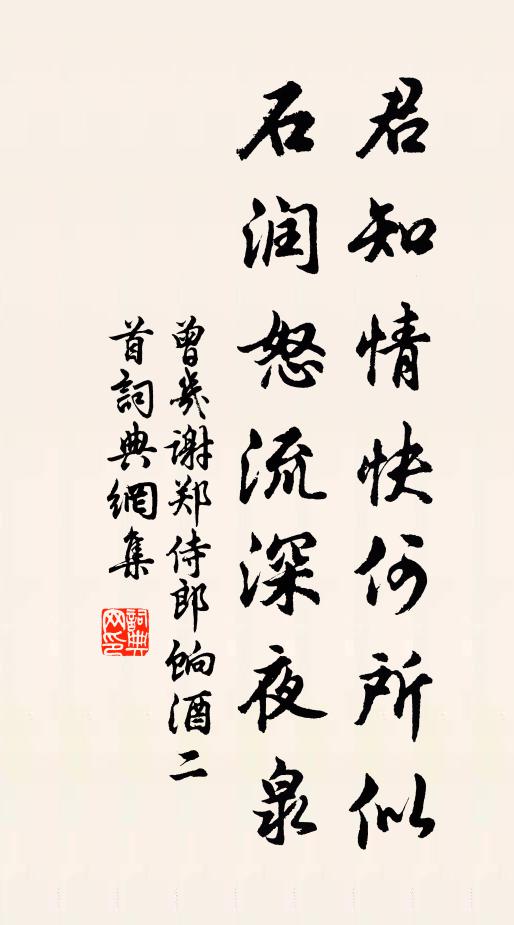 君知情快何所似
石润怒流深夜泉
曾幾谢郑侍郎餉酒二
首詞典網集
詞典
网印